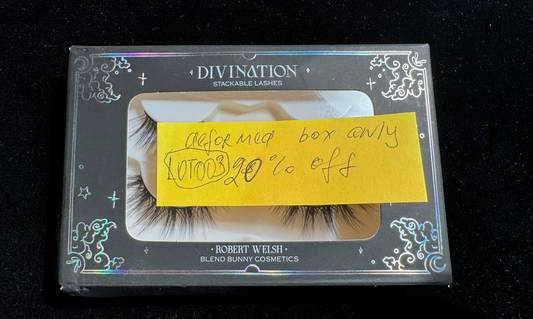 DIVINATION
STACKABLE LASHES
deformed box only
LOT003 20% off
• ROBERT WELSH •
BLEND BUNNY COSMETICS